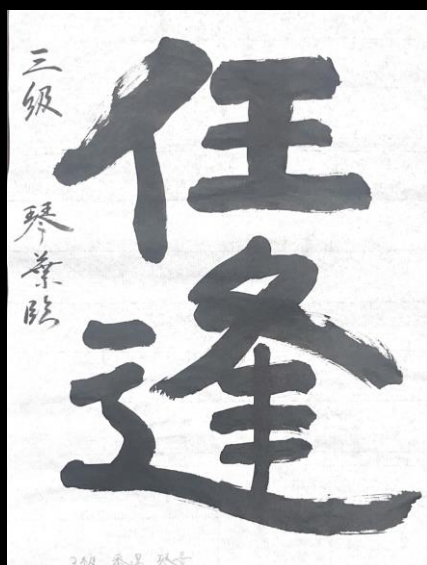 任逢
三級 琴葉臨